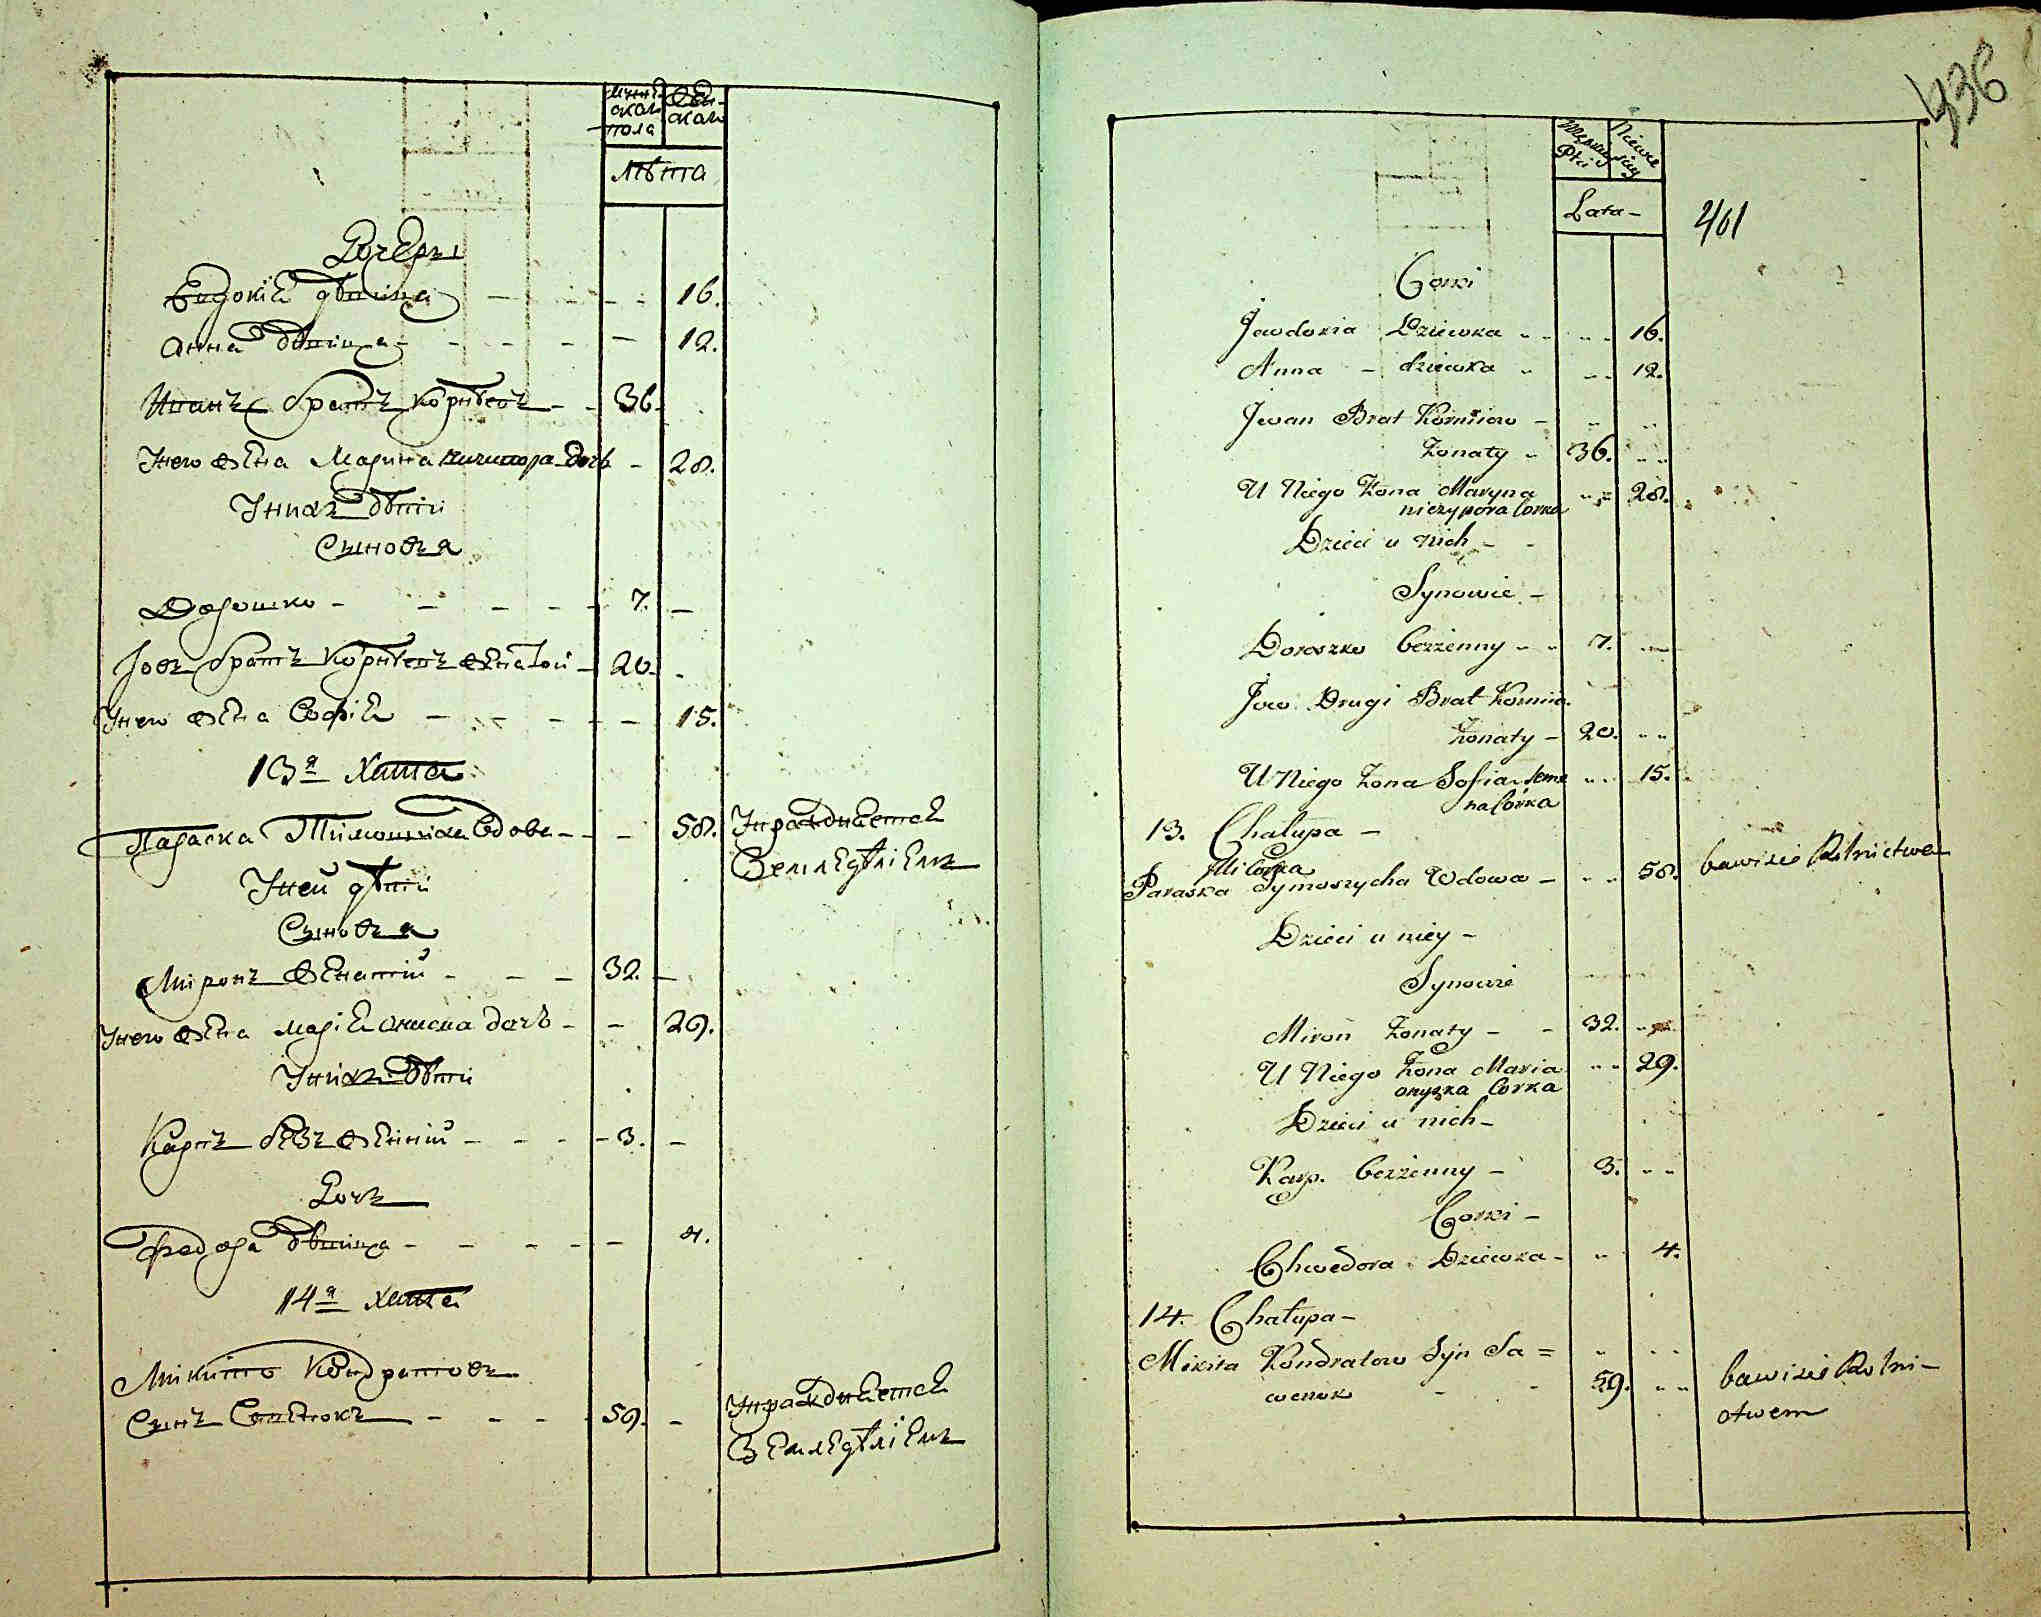 мужескаго пола
женскаго
Лѣта
Дочери
Евдокія дѣвица - - - 16.
Анна дѣвица - - - 12.
Иванъ братъ Корнѣевъ - - 36.
Унего жена Марина Ничипора дочь - 28.
Унихъ дѣти
Сыновья
Дорошко - - - 7. -
Іовъ братъ Корнѣевъ женатой - 20. -
Унего жена Софія - - - 15.
13я хата
Параска Тимошиха вдова - - 58. Упражняется
Земледѣліемъ
Уней дѣти
Сыновья
Миронъ женатій - - - 32. -
Унего жена Марія Ониска дочь - - 29.
Унихъ дѣти
Карпъ безъ женній - - - 3. -
Дочь
Федора дѣвица - - - 4.
14я хата
Микито Кондратовъ
Сынъ - - - 59. - Упражняется
Земледѣліемъ
436
Męzkiey Płci
Niewieściey
Lata -
401
Corki
Jewdokia Dziewka - 16.
Anna - dziewka - 12.
Jwan Brat Kornieiow -
Żonaty - 36.
U Niego Żona Maryna 28.
niczypora Corka
Dzieci u nich -
Synowie -
Doroszko bezżenny - 7.
Jow Drugi Brat Kornie.
Żonaty - 20.
U Niego Żona Sofia Seme 15.
na Corka
13. Chałupa -
Paraska Tymoszycha Wdowa - 58. bawi sie Rolnictwem
Dzieci u niey -
Synowie
Miron Żonaty - - 32.
U Niego Żona Maria 29.
onyska Corka
Dzieci u nich -
Karp. bezżenny - 3.
Corki -
Chwedora Dziewka - 4.
14. Chałupa -
Mikita Kondratow Syn Sa=
wenok - - 59. bawi sie Rolni-
ctwem